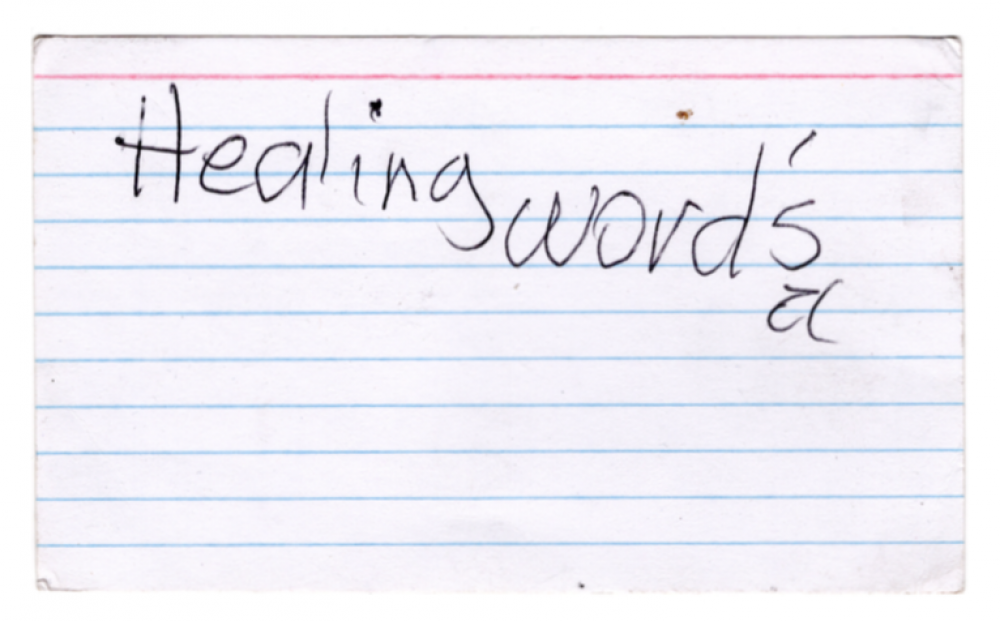 Healing word's